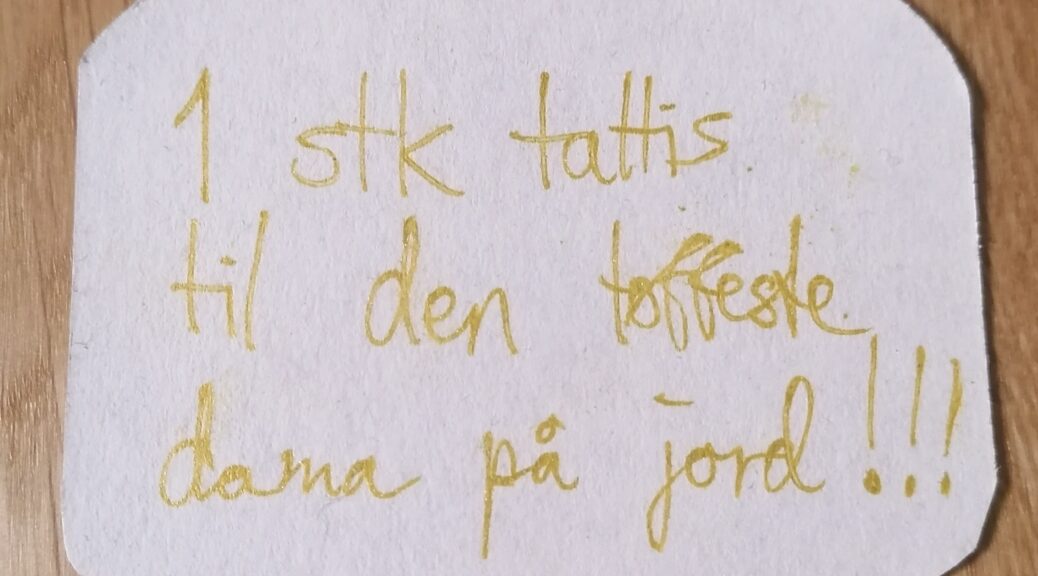 1 stk tattis
til den tøffeste
dama på jord!!!